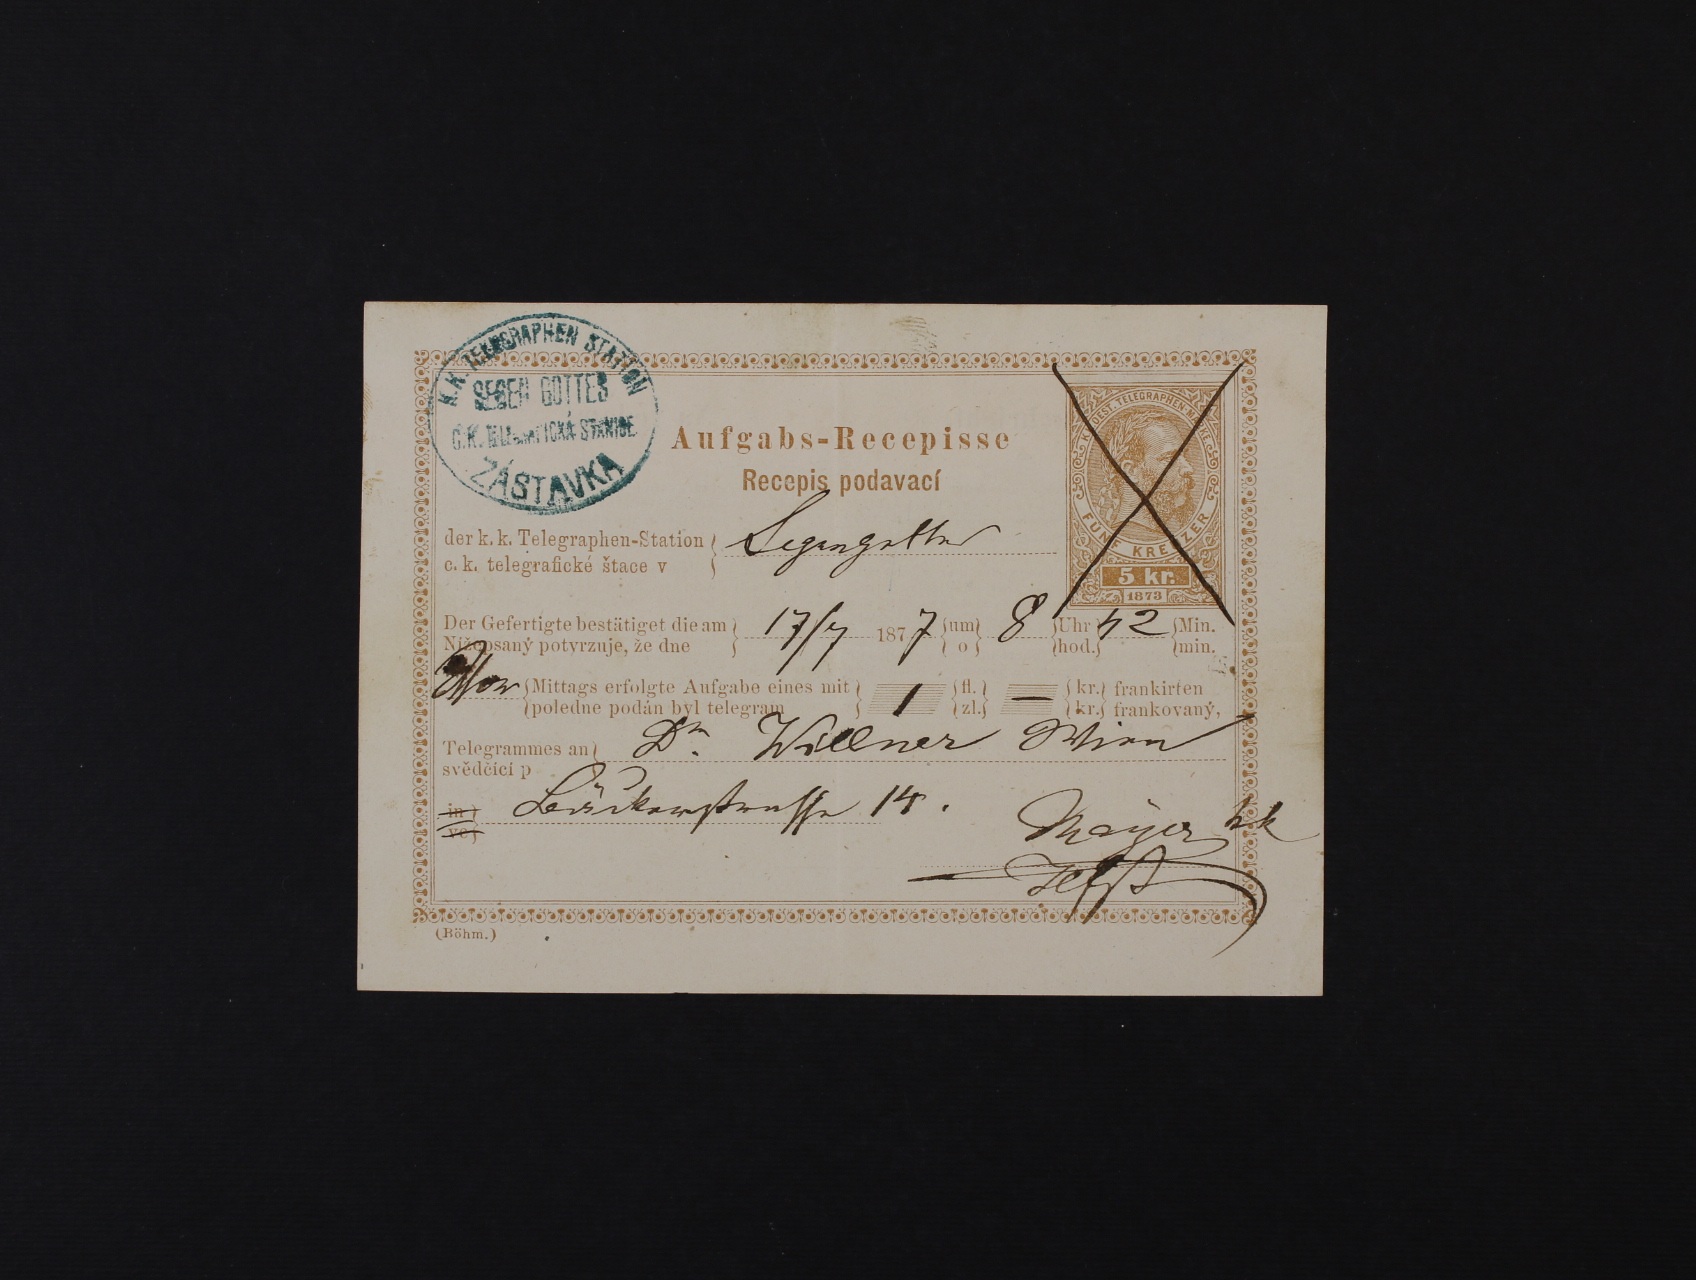 K.K. TELEGRAPHEN STATION
SEGEN GOTTES
C.K. TELEGRAFICKÁ STANICE
ZÁSTAVKA
Aufgabs-Recepisse
Recepis podavací
K.K. OEST. TELEGRAPHEN-MARKE
FÜNF KREUZER
5 kr.
1873
der k. k. Telegraphen-Station } Segengottes
c. k. telegrafické štace v
Der Gefertigte bestätiget die am } 17/7 1877 { um 8 { Uhr 42 { Min.
Nížeopsaný potvrzuje, že dne } o { hod. } min.
Vor { Mittags erfolgte Aufgabe eines mit } 1 { fl. } — { kr. } frankirten
poledne podán byl telegram { zl. } { kr. } frankovaný,
Telegrammes an } Dr. Willner Wien
svědčící p
in } Bäckerstrasse 14.
ve }
Mayer
(Böhm.)